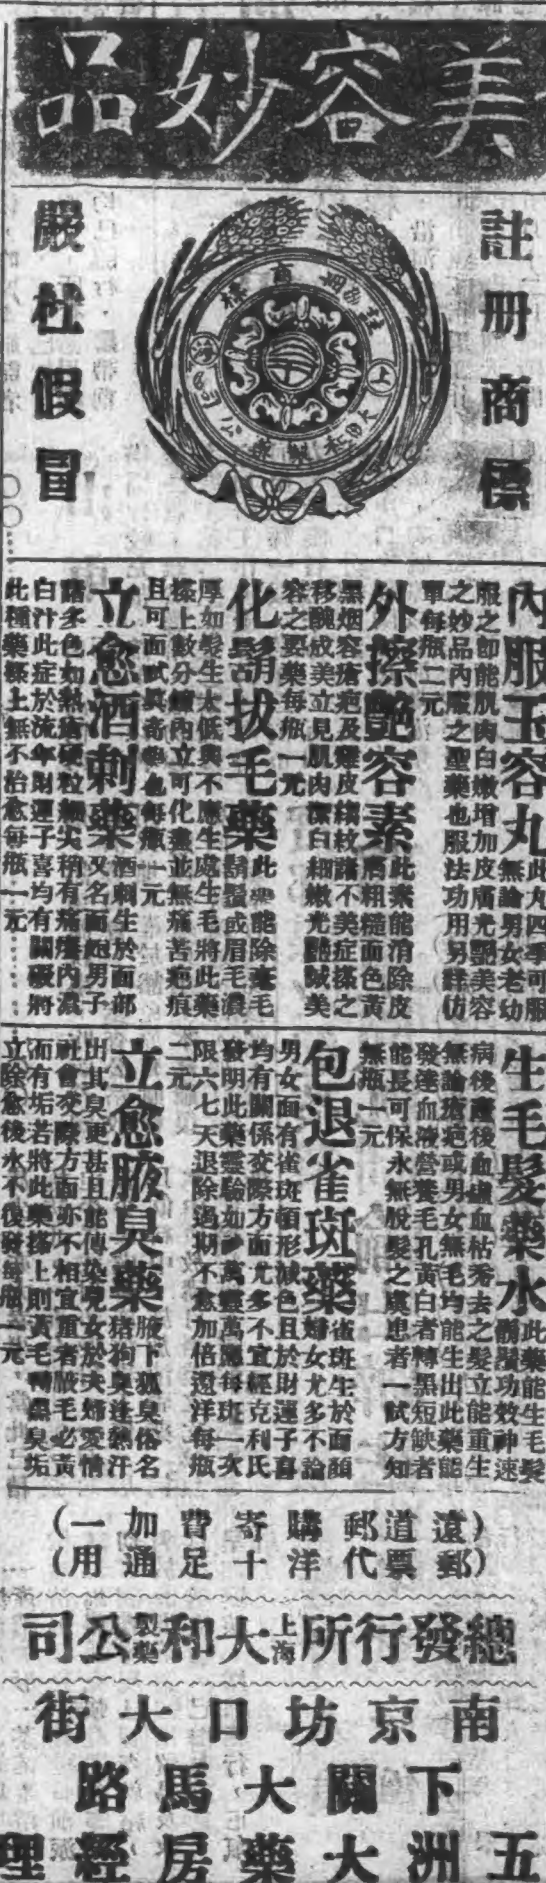 美容妙品
註冊商標
嚴杜假冒
註冊商標
上海
大和製藥公司
內服玉容丸
此九四季可服
無論男女老幼
服之即能肌肉白嫩增加皮膚光艷美容
之妙品內服之聖藥也服法功用另詳仿
單每瓶二元
外擦艷容素
此素能消除皮
膚粗糙面色黃
黑烟容瘡疤及雞皮縐紋諸不美症搽之
移醜成美立見肌肉潔白細嫩光艷誠美
容之要藥每瓶一元
化鬍拔毛藥
此藥能除毫毛
鬍鬚或眉毛濃
厚如髮生太低與不應生處生毛將此藥
搽上數分鐘內立可化盡並無痛苦疤痕
且可面試眞奇藥也每瓶一元
立愈酒刺藥
酒刺生於面部
又名面皰男子
諸多色如熱瘡硬粒細尖稍有痛癢內濃
白汁此症於流年財運子喜均有關礙將
此種藥搽上無不治愈每瓶一元
生毛髮藥水
此藥能生毛髮
鬍鬚功效神速
病後產後血虛血枯禿去之髮立能重生
無論瘡疤或男女無毛均能生出此藥能
發達血液營養毛孔黃白者轉黑短缺者
能長可保永無脫髮之虞患者一試方知
無瓶一元
包退雀斑藥
雀斑生於面顏
婦女尤多不論
男女面有雀斑頓形減色且於財運子喜
均有關係交際方面尤多不宜經克利氏
發明此藥靈驗如神萬靈萬應每斑一次
限六七天退除過期不愈加倍還洋每瓶
二元
立愈腋臭藥
腋下狐臭俗名
猪狗臭逢熱汗
出其臭更甚且能傳染兒女於夫婦愛情
社會交際方面亦不相宜重者腋毛必黃
而有垢若將此藥搽上則黃毛轉黑臭垢
立除愈後永不復發每瓶一元
(遠道郵購寄費加一)
(郵票代洋十足通用)
總發行所上海大和製藥公司
南京坊口大街
下關大馬路
五洲大藥房經理